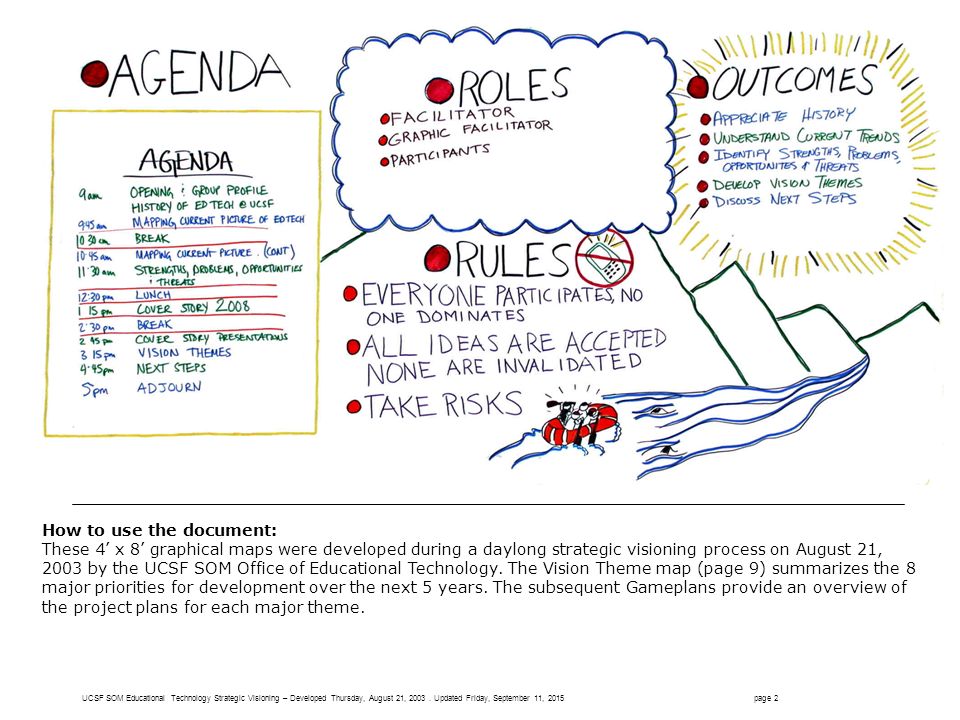 AGENDA
AGENDA
9am OPENING & GROUP PROFILE
HISTORY OF ED TECH @ UCSF
9:45 am MAPPING CURRENT PICTURE OF ED TECH
10:30 am BREAK
10:45 am MAPPING CURRENT PICTURE (CONT)
11:30 am STRENGTHS, PROBLEMS, OPPORTUNITIES
& THREATS
12:30 pm LUNCH
1:15 pm COVER STORY 2008
2:30 pm BREAK
2:45 pm COVER STORY PRESENTATIONS
3:15 pm VISION THEMES
4:45pm NEXT STEPS
5pm ADJOURN
ROLES
FACILITATOR
GRAPHIC FACILITATOR
PARTICIPANTS
OUTCOMES
APPRECIATE HISTORY
UNDERSTAND CURRENT TRENDS
IDENTIFY STRENGTHS, PROBLEMS,
OPPORTUNITES & THREATS
DEVELOP VISION THEMES
DISCUSS NEXT STEPS
RULES
EVERYONE PARTICIPATES, NO
ONE DOMINATES
ALL IDEAS ARE ACCEPTED
NONE ARE INVALIDATED
TAKE RISKS
How to use the document:
These 4’ x 8’ graphical maps were developed during a daylong strategic visioning process on August 21,
2003 by the UCSF SOM Office of Educational Technology. The Vision Theme map (page 9) summarizes the 8
major priorities for development over the next 5 years. The subsequent Gameplans provide an overview of
the project plans for each major theme.
UCSF SOM Educational Technology Strategic Visioning – Developed Thursday, August 21, 2003 . Updated Friday, September 11, 2015 page 2